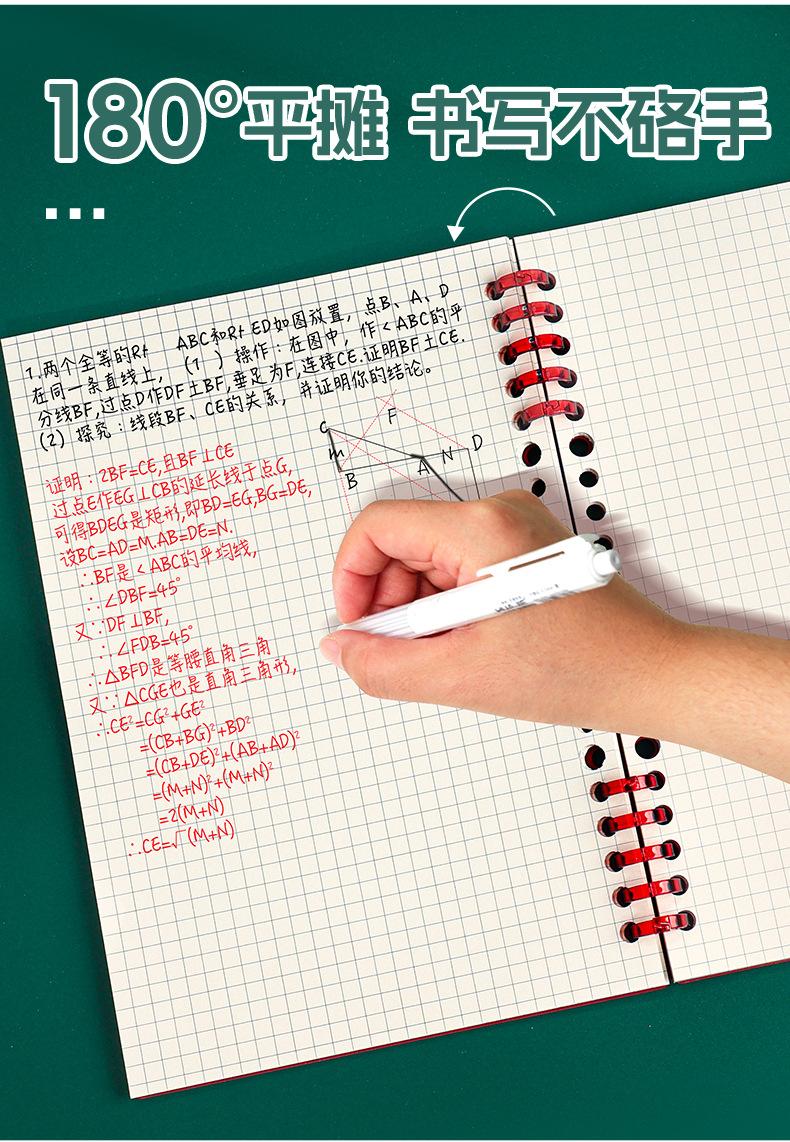 180°平摊 书写不硌手
1.两个全等的Rt ABC和Rt ED如图放置，点B、A、D
在同一条直线上，（1 ）操作：在图中，作<ABC的平
分线BF,过点D作DF⊥BF,垂足为F,连接CE.证明BF⊥CE.
(2）探究：线段BF、CE的关系，并证明你的结论。
C
F
D
M
A
N
B
证明：2BF=CE,且BF⊥CE
过点E作EG⊥CB的延长线于点G,
可得BDEG是矩形,即BD=EG,BG=DE,
设BC=AD=M.AB=DE=N.
∴BF是<ABC的平均线,
∴∠DBF=45°
又∵DF⊥BF,
∴∠FDB=45°
∴△BFD是等腰直角三角
又∵△CGE也是直角三角形,
∴CE²=CG²+GE²
=(CB+BG)²+BD²
=(CB+DE)²+(AB+AD)²
=(M+N)²+(M+N)²
=2(M+N)
∴CE=√(M+N)